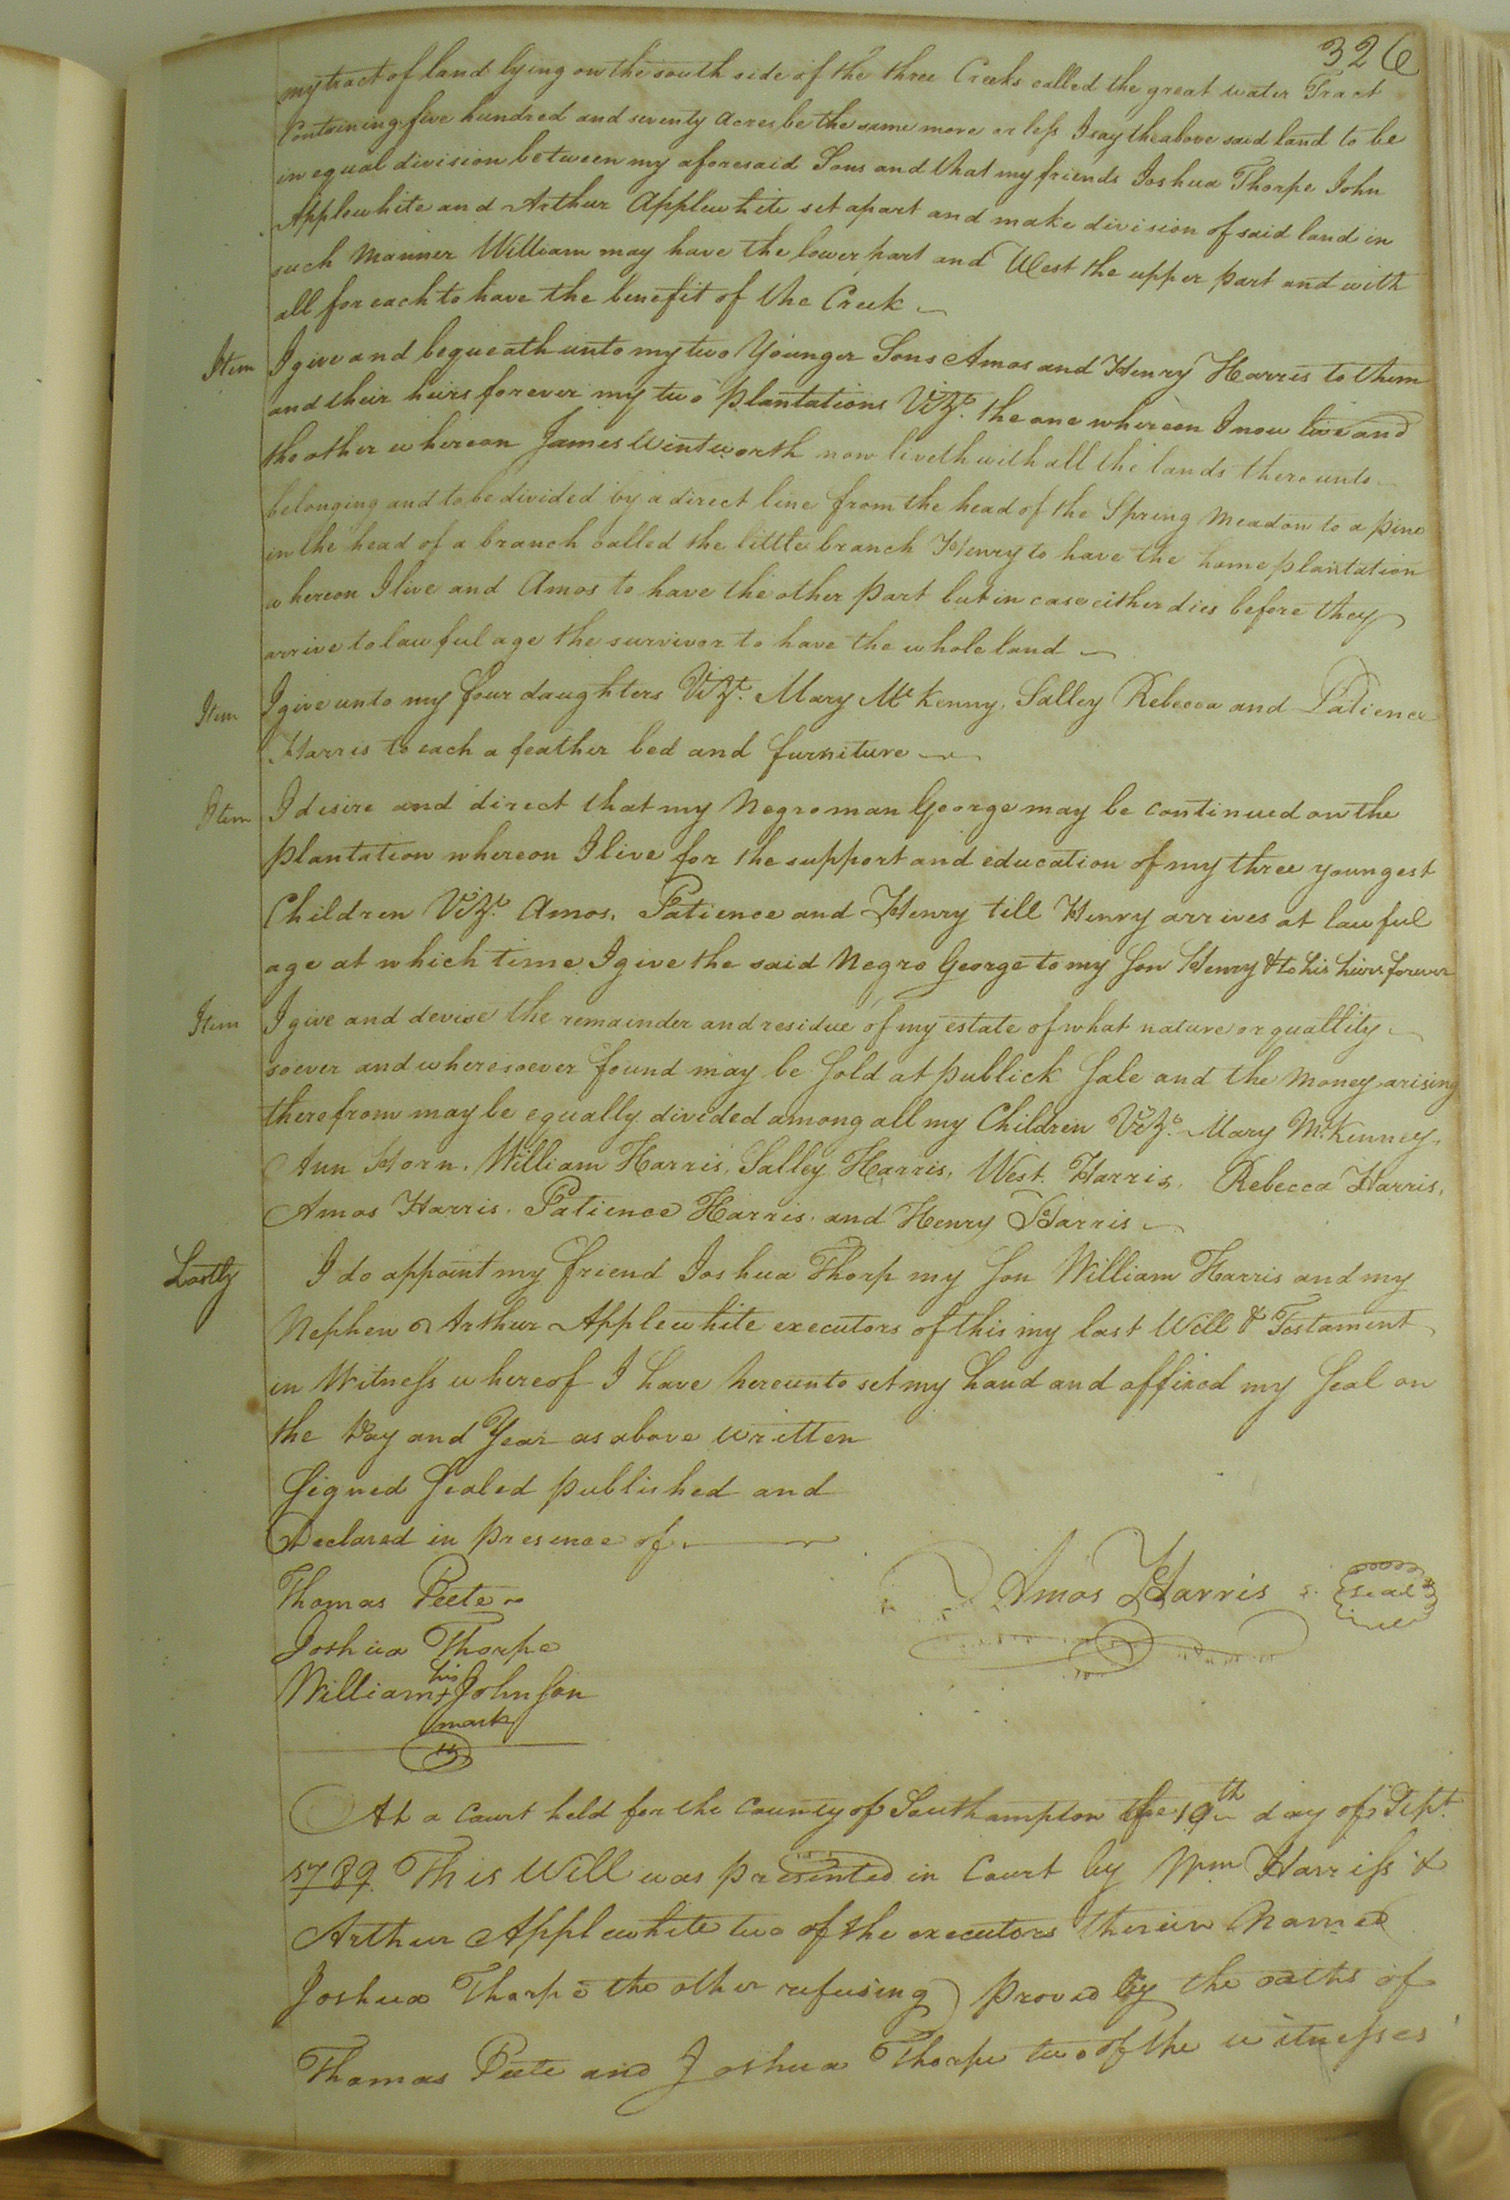 326
my tract of land lying on the south side of the three Creeks called the great water Tract
Containing five hundred and seventy Acres be the same more or less I say the above said land to be
in equal division between my aforesaid Sons and that my friends Joshua Thorpe John
Applewhite and Arthur Applewhite set apart and make division of said land in
such Manner William may have the lower part and West the upper part and with
all for each to have the benefit of the Creek
Item I give and bequeath unto my two Younger Sons Amos and Henry Harris to them
and their heirs forever my two plantations Vizt. the one whereon I now live and
the other whereon James Wintworth now liveth with all the lands thereunto
belonging and to be divided by a direct line from the head of the Spring Meadow to a pine
in the head of a branch called the little branch Henry to have the home plantation
whereon I live and Amos to have the other part but in case either dies before they
arrive to lawful age the survivor to have the whole land
Item I give unto my four daughters Vizt. Mary McKenny, Salley Rebecca and Patience
Harris to each a feather bed and furniture
Item I desire and direct that my Negro man George may be continued on the
plantation whereon I live for the support and education of my three youngest
Children Vizt. Amos, Patience and Henry till Henry arrives at lawful
age at which time I give the said Negro George to my Son Henry & to his heirs forever
Item I give and devise the remainder and residue of my estate of what nature or quallity
soever and wheresoever found may be Sold at publick Sale and the Money arising
therefrom may be equally divided among all my Children Vizt. Mary McKenney,
Ann Horn, William Harris, Salley Harris, West Harris, Rebecca Harris,
Amos Harris, Patience Harris, and Henry Harris
Lastly I do appoint my friend Joshua Thorp my Son William Harris and my
Nephew Arthur Applewhite executors of this my last Will & Testament
in Witness whereof I have hereunto set my hand and affixed my Seal on
the Day and Year as above written
Signed Sealed published and
Declared in presence of
Thomas Peete
Amos Harris seal
Joshua Thorpe
his
William + Johnson
mark
At a Court held for the County of Southampton the 10th day of Sept.
1789. This Will was presented in Court by Wm Harriss &
Arthur Applewhite two of the executors therein Named
Joshua Thorpe the other refusing) proved by the oaths of
Thomas Peete and Joshua Thorpe two of the witnesses